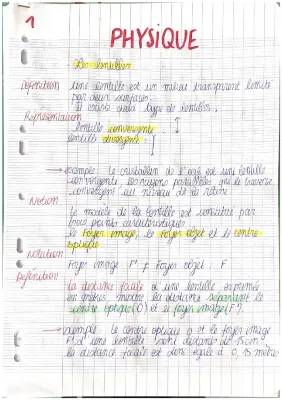 1
PHYSIQUE
Les lentilles
Définition une lentille est un milieu transparent limité
par deux surfaces.
il existe deux type de lentilles.
Représentation
lentille convergente
lentille divergente
→ exemple : le cristallin de l'oeil est une lentille
convergente, les rayons parallèles qui le traverse
convergent au niveau de la rétine
Notion
le modèle de la lentille est constitué par
trois points caractéristiques
le Foyer image, le Foyer objet et le centre
optique.
Notation
Foyer image F' ≠ Foyer objet F
Définition
la distance focale d'une lentille exprimée
en mètres, montre la distance séparant le
centre optique (O) et le foyer image (F')
→ exemple le centre optique O et le foyer image
F' d'une lentille sont distants de 15 cm
la distance focale est donc égale à 0,15 mètre